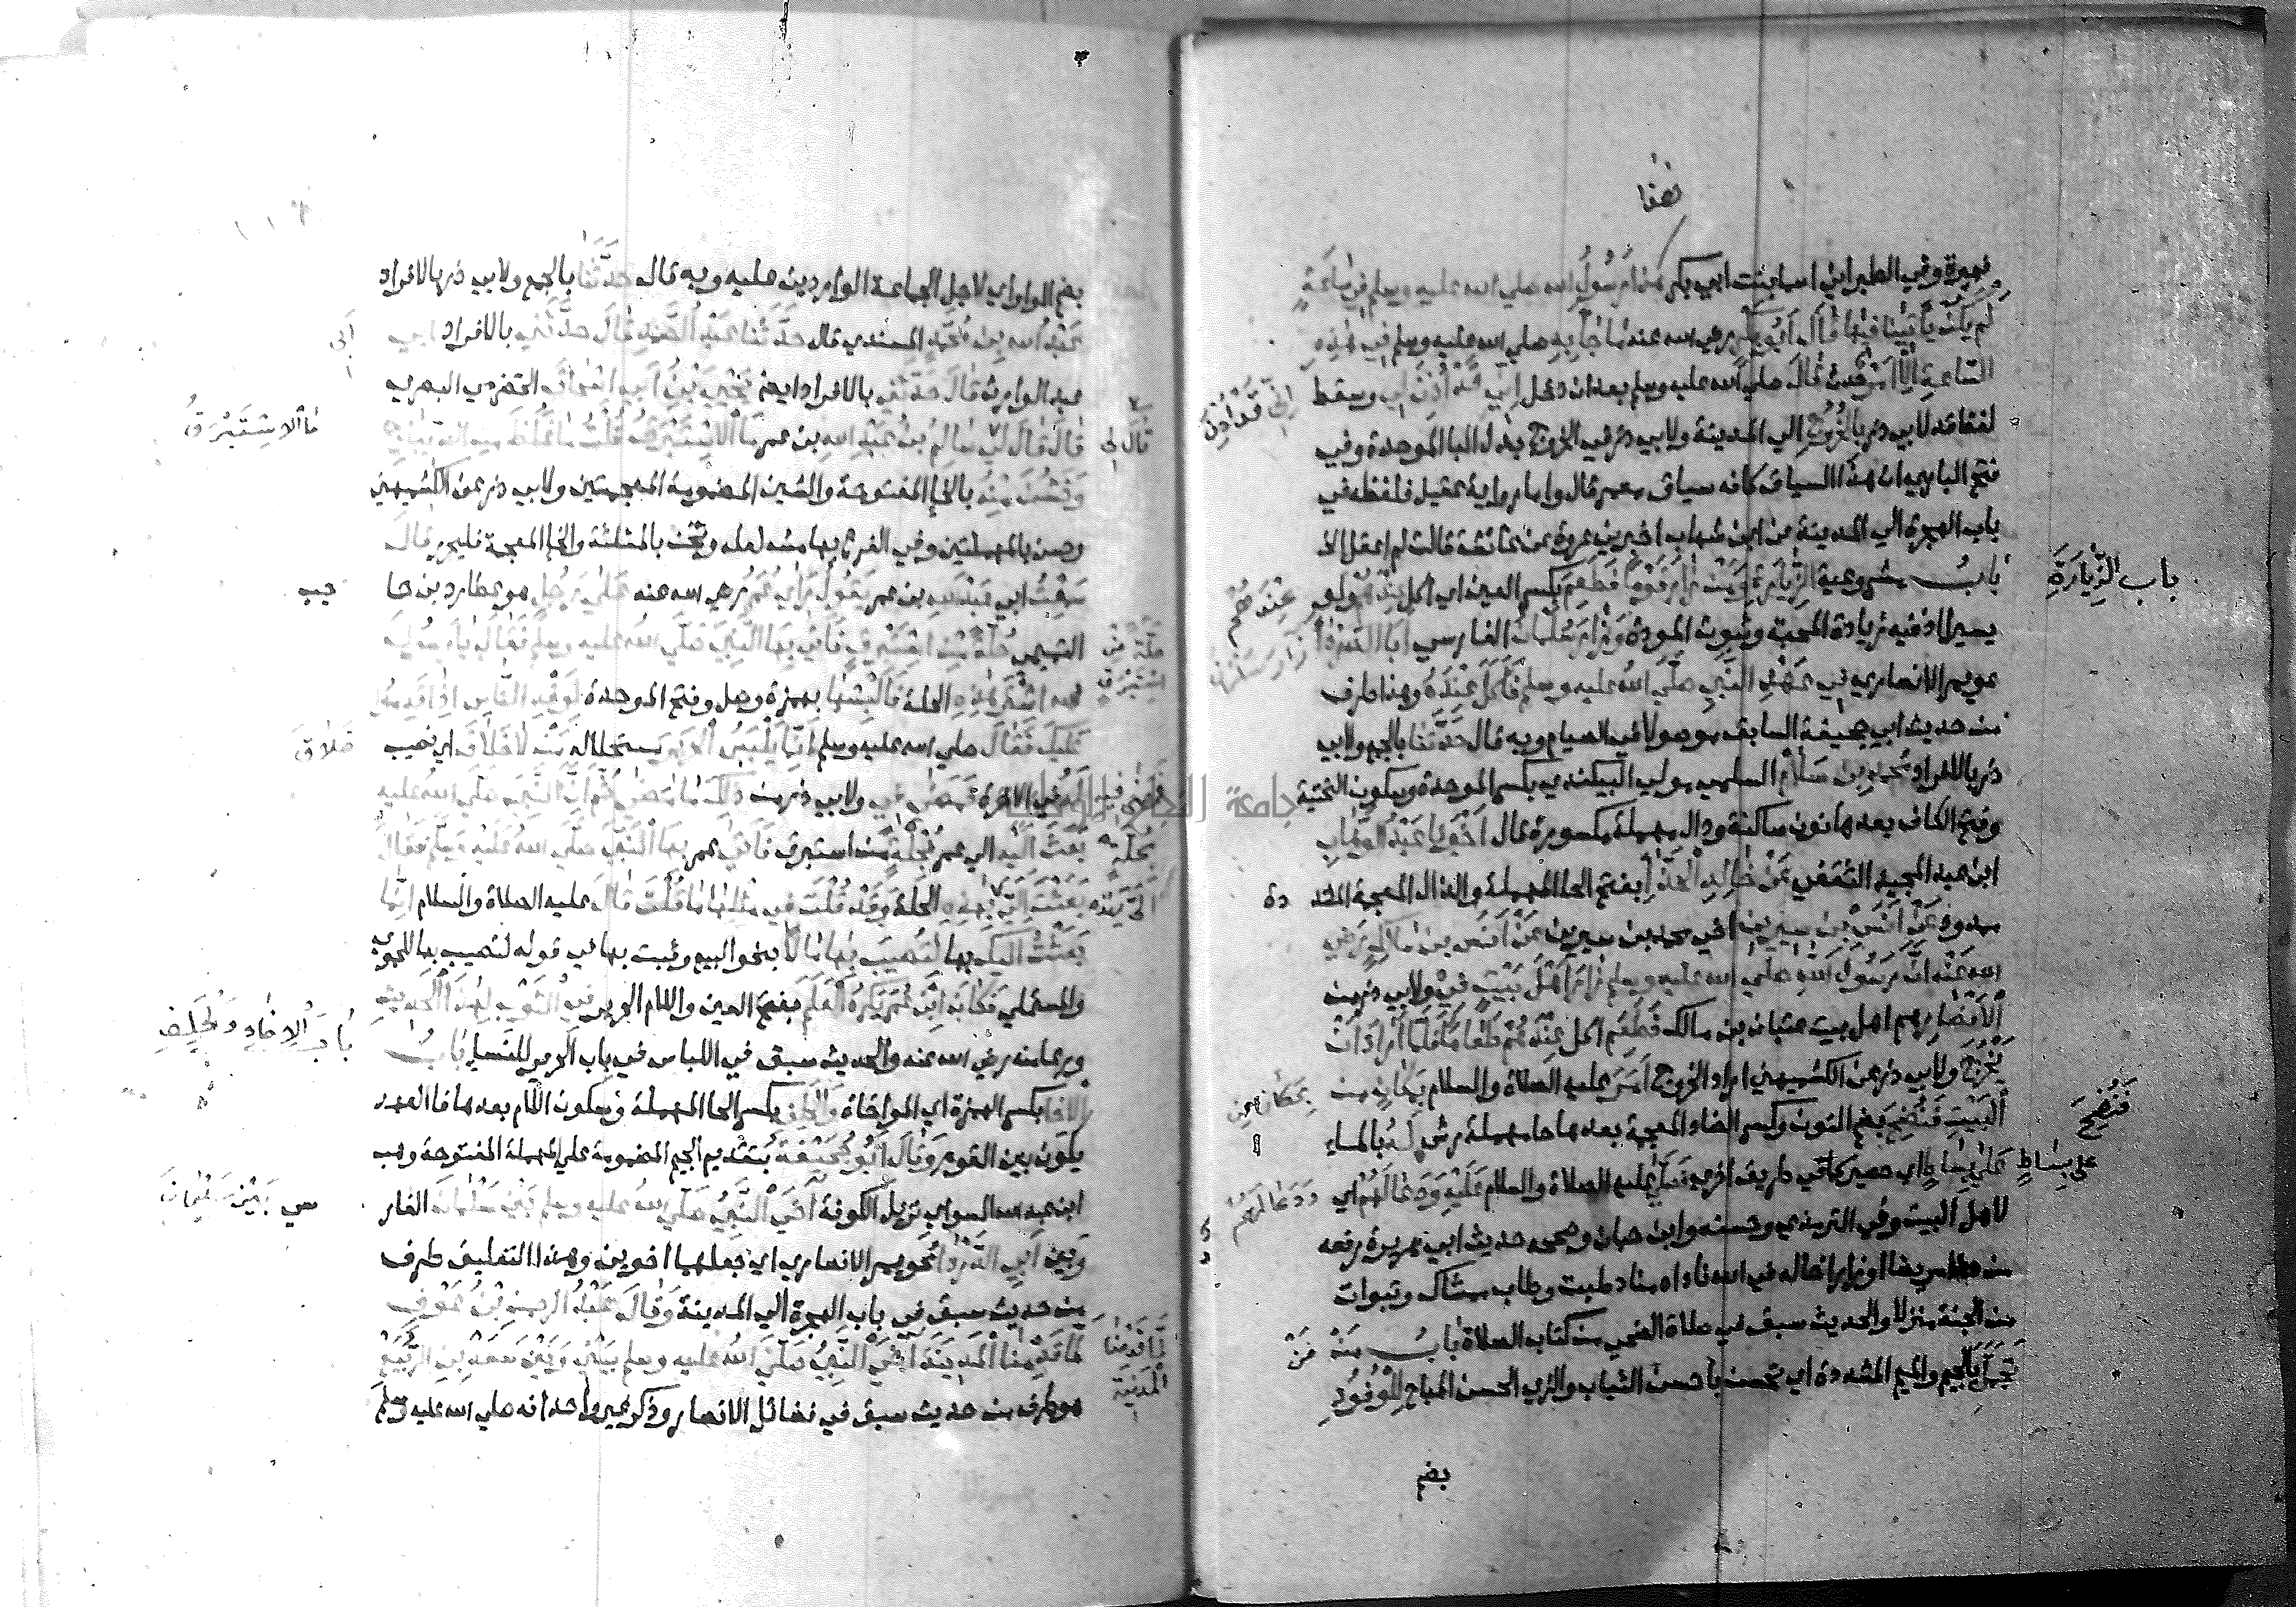 نصفا
فهيرة وفي الطبراني اسما بنت ابي بكر هذا رسول الله صلي الله عليه وسلم في ساعة
لم يكن ياتينا فيها قال ابو بكر رضي الله عنه ما جا به صلي الله عليه وسلم في هذه
الساعة الا امر حدث قال صلي الله عليه وسلم بعد ان دخل اني قد اذن لي وسقط
اني قد اذن
لفظ قد لابي ذر بالخروج الي المدينة ولابي ذر في الخروج بدل البا الموحدة وفي
فتح الباري ان هذا السياق كانه سياق معمر قال واما رواية عقيل فلفظه في
باب الهجرة الي المدينة عن ابن شهاب اخبرني عروة عن عائشة قالت لم اعقل الا
باب الزيارة
باب مشروعية الزيارة ومن زار قوما فطعم بكسر العين اي اكل عندهم ولو
عندهم
يسيرا اذ فيه زيادة المحبة وثبوت المودة وزار سلمان الفارسي ابا الدردا
زار سلمان
عويمر الانصاري في عهد النبي صلي الله عليه وسلم فاكل عنده وهذا طرف
من حديث ابي جحيفة السابق موصولا في الصيام وبه قال حدثنا بالجمع ولابي
ذر بالافراد محمد بن سلام السلمي مولي البيكندي بكسر الموحدة وسكون التحتية
وفتح الكاف بعدها نون ساكنة ودال مهملة مكسورة قال اخبرنا عبد الوهاب
ابن عبد المجيد الثقفي عن خالد الحذا بفتح الحا المهملة والذال المعجمة المشددة
ممدود عن انس بن سيرين اخي محمد بن سيرين عن انس بن مالك رضي
الله عنه ان رسول الله صلي الله عليه وسلم زار اهل بيت في ولابي ذر من
الانصار هم اهل بيت عتبان بن مالك فطعم اكل عندهم طعاما فلما اراد ان
يخرج ولابي ذر عن الكشميهني اراد الخروج امر عليه الصلاة والسلام بمكان من
بمكان من
البيت فنضح بضم النون وكسر الضاد المعجمة بعدها حا مهملة رش له بالماء
فنضح
علي بساط اي حصير كما في طريق اخري فصلي عليه الصلاة والسلام عليه ودعا لهم اي
علي بساط
ودعا لهم
لاهل البيت وفي الترمذي وحسنه وابن حبان وصححه حديث ابي هريرة رفعه
من عاد مريضا او زار اخا له في الله ناداه مناد طبت وطاب ممشاك وتبوات
من الجنة منزلا والحديث سبق في صلاة الضحي من كتاب الصلاة باب من
من
تجمل بالجيم والميم المشددة اي تحسن باحسن الثياب والزي الحسن المباح للوفود
بضم
بضم الواو اي لاجل الجماعة الواردين عليه وبه قال حدثنا بالجمع ولابي ذر بالافراد
عبد الله بن محمد المسندي قال حدثنا عبد الصمد قال حدثني بالافراد ابي
ابي
عبد الوارث قال حدثني بالافراد ايضا يحيي بن ابي اسحاق الحضرمي البصري
قال قال لي سالم بن عبد الله بن عمر ما الاستبرق قلت ما غلظ من الديباج
قال لي
ما الاستبرق
وخشن منه بالخا المفتوحة والشين المضمومة المعجمتين ولابي ذر عن الكشميهني
وحسن بالمهملتين وفي الفرع بهامشه لعله وثخن بالمثلثة والخا المعجمة فليحرر قال
سمعت ابي عبد الله بن عمر يقول راي عمر رضي الله عنه علي رجل هو عطارد بن حا
جب
التميمي حلة من استبرق فاتي بها النبي صلي الله عليه وسلم فقال يا رسول
حلة من
استبرق
الله اشتر هذه الحلة فالبسها بهمزة وصل وفتح الموحدة لوفد الناس اذا قدموا
عليك فقال صلي الله عليه وسلم انما يلبس الحرير مستحلا له من لا خلاق اي نصيب
خلاق
له في الاخرة فمضي في ولابي ذر من ذلك ما مضي ثم ان النبي صلي الله عليه
بعث اليه الي عمر بحلة من استبرق فاتي عمر بها النبي صلي الله عليه وسلم فقال
بحلة
بعثت الي بهذه الحلة وقد قلت في مثلها ما قلت قال عليه الصلاة والسلام انما
بعثت اليك بها لتصيب بها مالا بنحو البيع وثبت بها في قوله لتصيب بها للحموي
والمستملي فكان ابن عمر يكره العلم بفتح العين واللام الحرير في الثوب لهذا الحديث
ورعا منه رضي الله عنه والحديث سبق في اللباس في باب الحرير للنسا باب
باب الاخاء والحلف
الاخا بكسر الهمزة اي المواخاة والحلف بكسر الحا المهملة وسكون اللام بعدها فا العهد
يكون بين القوم وقال ابو جحيفة بتقديم الجيم المضمومة علي المهملة المفتوحة وهب
ابن عبد الله السواي نزيل الكوفة اخي النبي صلي الله عليه وسلم بين سلمان الفار
سي بين سلمان
وبين ابي الدردا عويمر الانصاري اي جعلهما اخوين وهذا التعليق طرف
من حديث سبق في باب الهجرة الي المدينة وقال عبد الرحمن بن عوف
لما قدمنا المدينة اخي النبي صلي الله عليه وسلم بيني وبين سعد بن الربيع
لما قدمنا
المدينة
هو طرف من حديث سبق في فضائل الانصار وذكر غير واحد انه صلي الله عليه وسلم